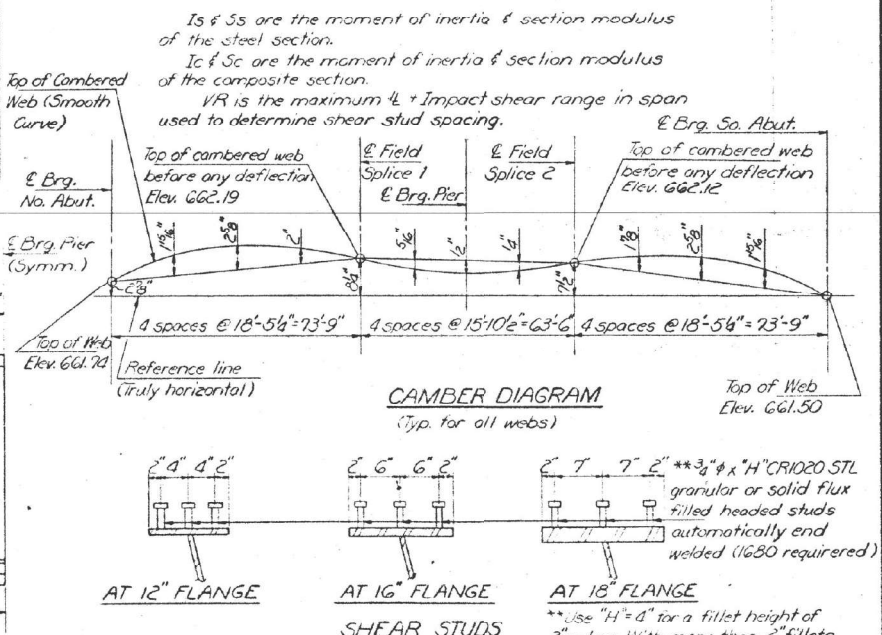 Is & Ss are the moment of inertia & section modulus
of the steel section.
Ic & Sc are the moment of inertia & section modulus
of the composite section.
VR is the maximum LL + Impact shear range in span
used to determine shear stud spacing.
Top of Cambered
Web (Smooth
Curve)
℄ Brg.
No. Abut.
Top of cambered web
before any deflection
Elev. 662.19
℄ Field
Splice 1
℄ Brg. Pier
℄ Field
Splice 2
℄ Brg. So. Abut.
Top of cambered web
before any deflection
Elev. 662.12
℄ Brg. Pier
(Symm.)
1 15/16"
2 5/8"
2"
5/16"
1/2"
1/4"
1 7/8"
2 5/8"
1 15/16"
2 7/8"
8 1/4"
7 1/2"
4 spaces @ 18'-5 1/4" = 73'-9"
4 spaces @ 15'-10 1/2" = 63'-6"
4 spaces @ 18'-5 1/4" = 73'-9"
Top of Web
Elev. 661.74
Reference line
(Truly horizontal)
CAMBER DIAGRAM
(Typ. for all webs)
Top of Web
Elev. 661.50
2" 4" 4" 2"
2" 6" 6" 2"
2" 7" 7" 2"
**3/4" φ x "H" CR1020 STL
granular or solid flux
filled headed studs
automatically end
welded (1680 requirered)
AT 12" FLANGE
AT 16" FLANGE
AT 18" FLANGE
SHEAR STUDS
**Use "H" = 4" for a fillet height of